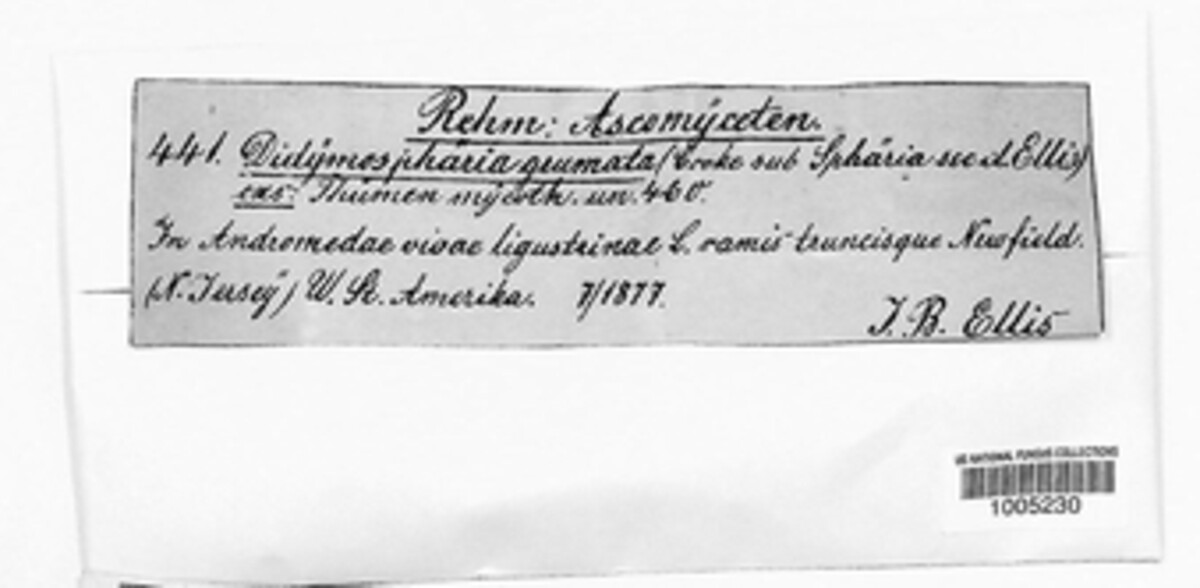 Rehm: Ascomÿceten.
441. Didÿmosphäria grumata (Cooke sub Sphäria sec d Ellis)
exs: Thümen mÿcoth. un. 460.
In Andromedae vivae ligustrinae L. ramis truncisque Newfield.
(N. Jerseÿ) W. St. Amerika. 7/1877.
J. B. Ellis
US NATIONAL FUNGUS COLLECTIONS
1005230